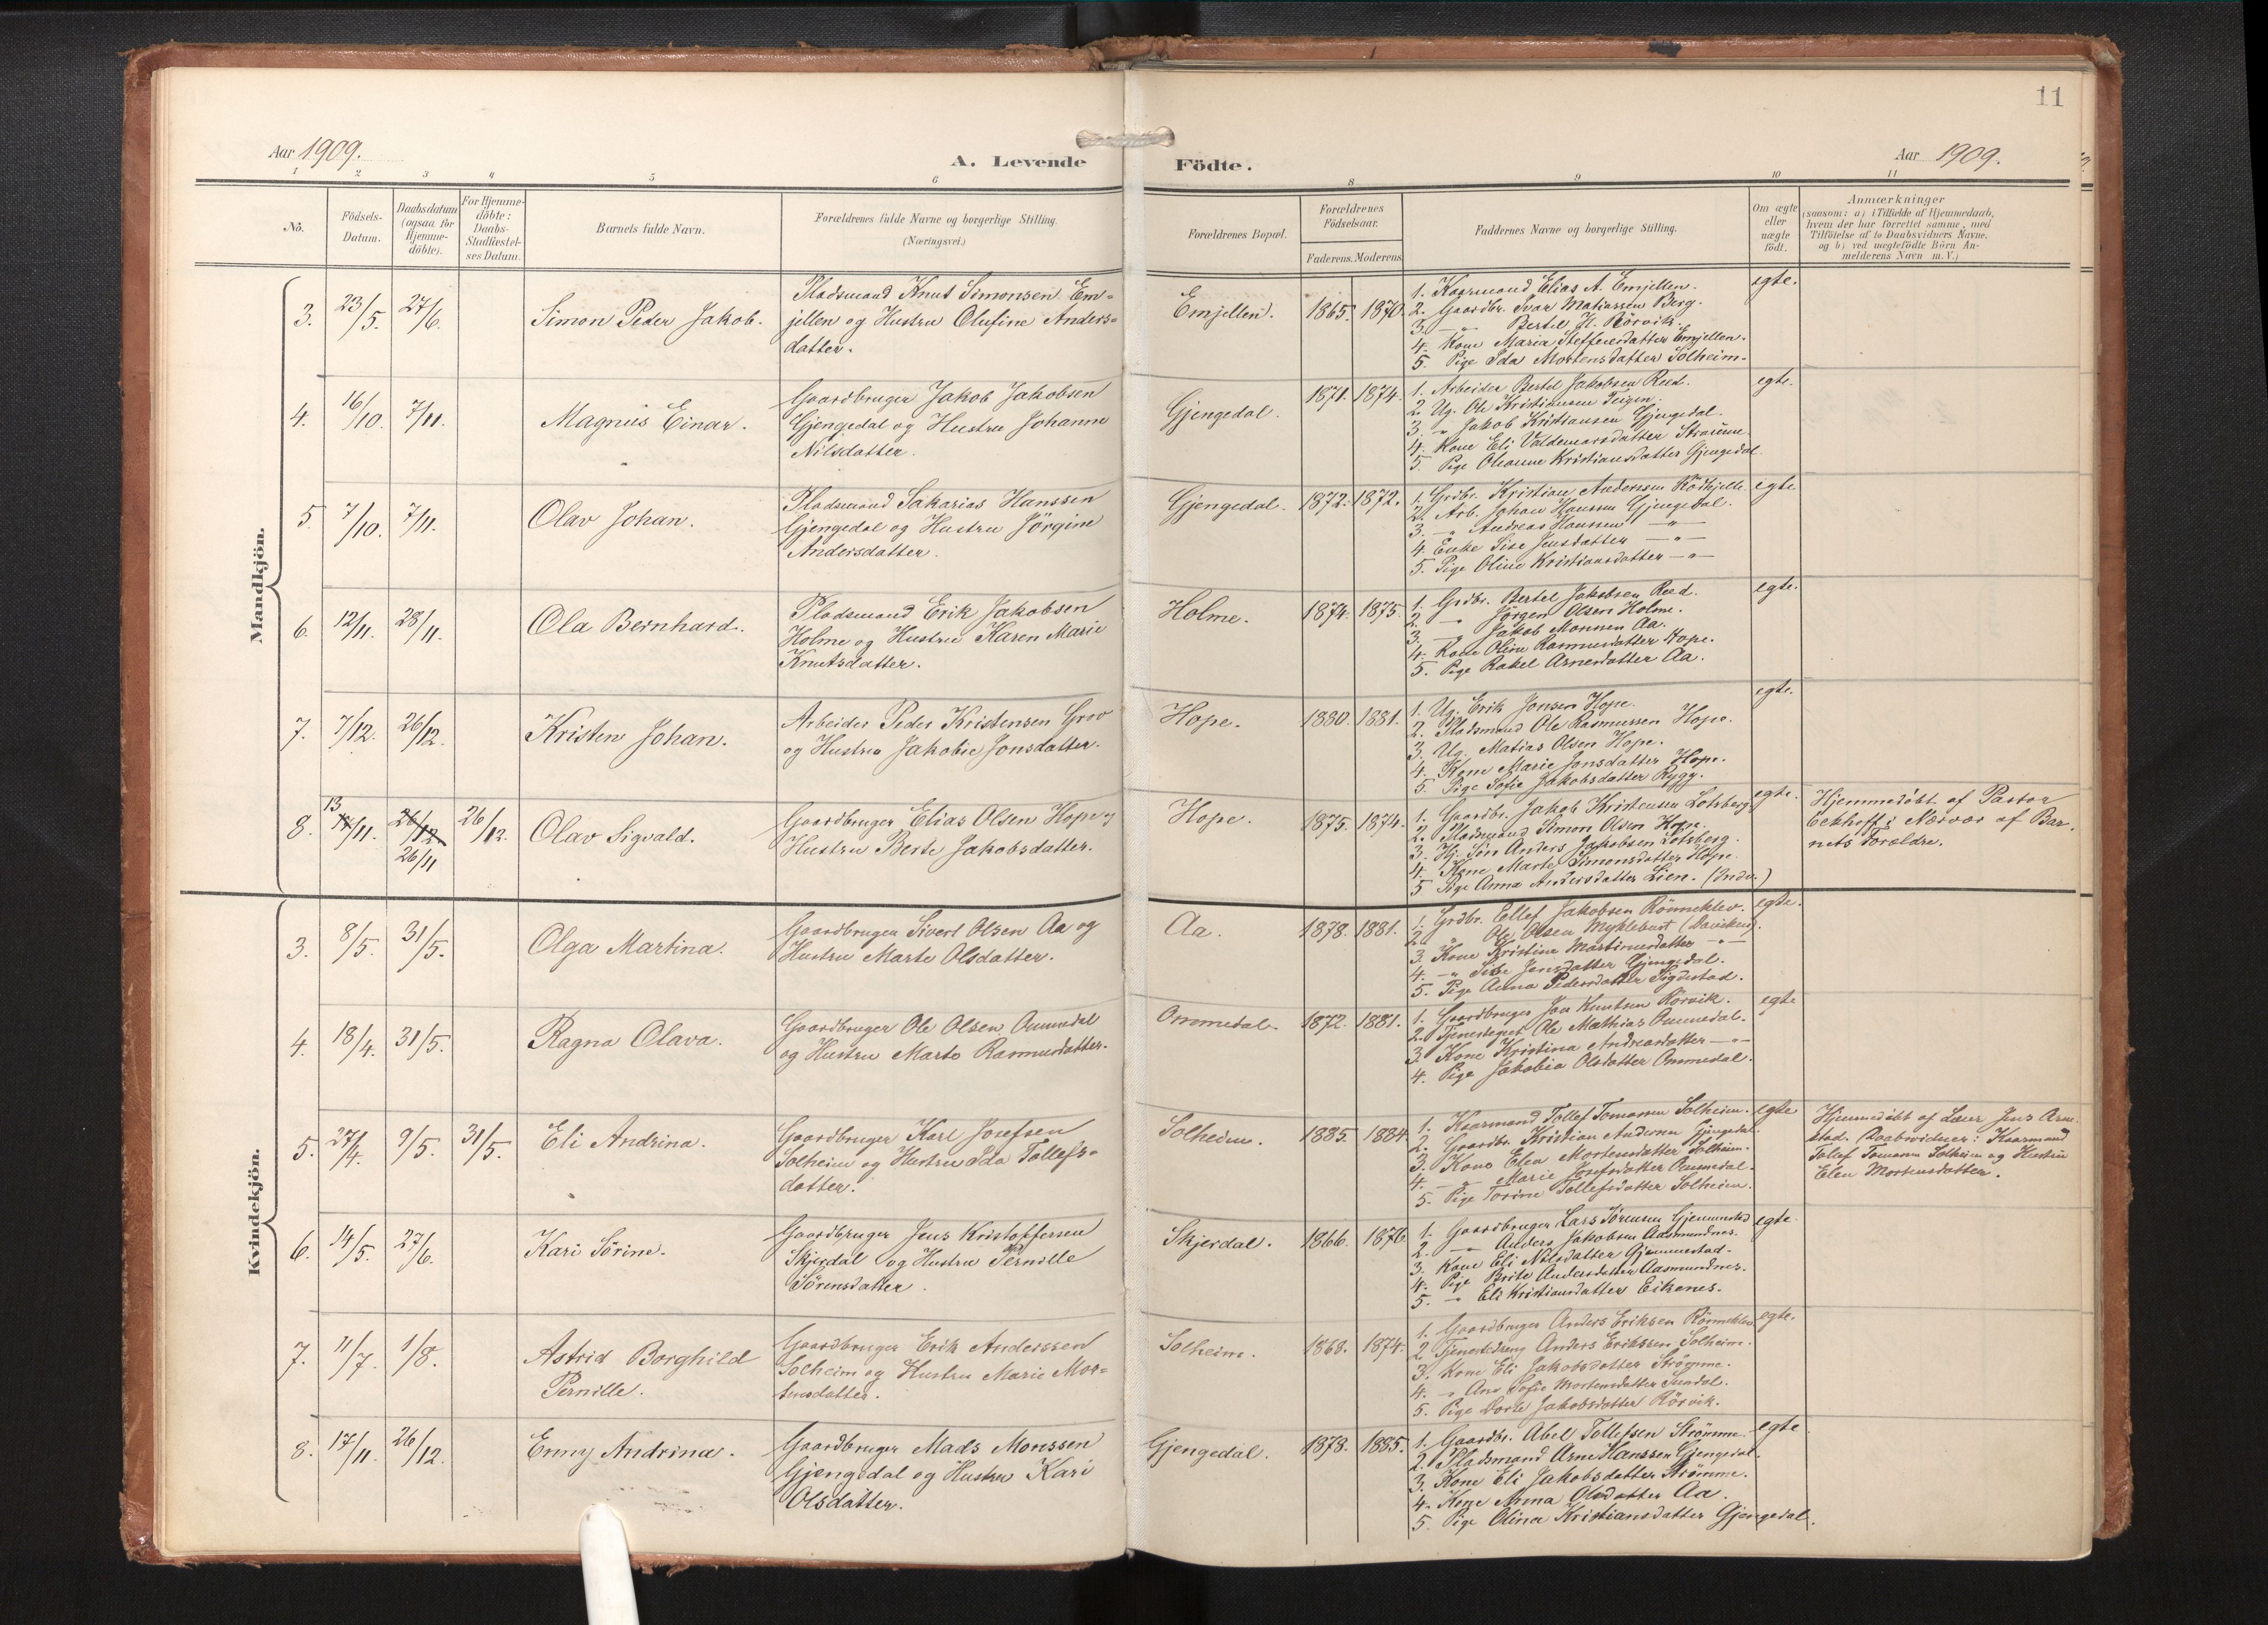 11
Aar 1909.
A. Levende
Födte.
Aar 1909.
1 2 3 4 5 6
8 9 10 11
No.
Födsels-
Datum.
Daabsdatum
(ogsaa for
Hjemme-
döbte).
For Hjemme-
döbte:
Daabs-
Stadfæstel-
ses Datum.
Barnets fulde Navn.
Forældrenes fulde Navne og borgerlige Stilling.
(Næringsvei.)
Forældrenes Bopæl.
Forældrenes
Födselsaar.
Faderens. Moderens.
Faddernes Navne og borgerlige Stilling.
Om ægte
eller
uægte
födt.
Anmærkninger
(saasom: a) i Tilfælde af Hjemmedaab,
hvem der har forrettet samme, med
Tilföielse af to Daabsvidners Navne.
og b) ved uægtefödte Börn An-
melderens Navn m. V.)
Mandkjön.
3. 23/5. 27/6. Simon Peder Jakob.
Pladsmand Knut Simonsen Em-
jellen og Hustru Olufine Anders-
datter.
Emjellen. 1865. 1870.
1. Kaarmand Elias A. Emjellen.
2. Gaardbr. Ivar Matiassen Berg.
3. -"- Bertel H. Rörvik.
4. Kone Maria Steffensdatter Emjellen.
5. Pige Ida Mortensdatter Solheim.
egte.
4. 16/10. 7/11. Magnus Einar.
Gaardbruger Jakob Jakobsen
Gjengedal og Hustru Johanne
Nilsdatter.
Gjengedal. 1871. 1874.
1. Arbeider Bertel Jakobsen Reed.
2. Ug. Ole Kristiansen Teigen.
3. -"- Jakob Kristiansen Gjengedal.
4. Kone Eli Valdemarsdatter Strømme.
5. Pige Oleanne Kristiansdatter Gjengedal
egte.
5. 7/10. 7/11. Olav Johan.
Pladsmand Sakarias Hanssen
Gjengedal og Hustru Jörgine
Andersdatter.
Gjengedal. 1872. 1872.
1. Grdbr. Kristian Anderssen
2. Arb. Johan Hanssen Gjengedal.
3. -"- Andreas Hanssen -"-
4. Enke Sise Jensdatter -"-
5. Pige Oline Kristiansdatter -"-
egte
6. 12/11. 28/11. Ola Bernhard.
Pladsmand Erik Jakobsen
Holme og Hustru Karen Marie
Knutsdatter.
Holme. 1874. 1875.
1. Grdbr. Bertel Jakobsen Reed.
2. -"- Jörgen Olsen Holme.
3. -"- Jakob Monsen Aa.
4. Kone Oline Rasmusdatter Hope.
5. Pige Rakel Arnesdatter Aa.
egte.
7. 7/12. 26/12. Kristen Johan.
Arbeider Peder Kristensen Grov
og Hustru Jakobie Jonsdatter.
Hope. 1880. 1881.
1. Ug. Erik Jonsen Hope.
2. Pladsmand Ole Rasmussen Hope.
3. Ug. Matias Olsen Hope.
4. Kone Marie Jonsdatter Hope.
5. Pige Sofie Jakobsdatter Rygg.
egte.
8. 13/11. 26/12 26/11 26/12. Olav Sigvald.
Gaardbruger Elias Olsen Hope og
Hustru Berte Jakobsdatter.
Hope. 1875. 1874.
1. Gaardbr. Jakob Kristensen Lotsberg.
2. Pladsmand Simon Olsen Hope.
3. Hj. Søn Anders Jakobsen Lotsberg.
4. Kone Marte Simonsdatter Hope.
5. Pige Anna Andersdatter Lien. (Indv.)
egte.
Hjemmedöbt af Pastor
Eckhoff i Nærvær af Bar-
nets Forældre.
Kvindekjön.
3. 8/5. 31/5. Olga Martina.
Gaardbruger Sivert Olsen Aa og
Hustru Marte Olsdatter.
Aa. 1878. 1881.
1. Grdbr. Ellef Jakobsen Rönneklev.
2. -"- Ole Olsen Myklebust (Daviken).
3. Kone Kristine Martinusdatter -"-
4. -"- Sise Jensdatter Gjengedal.
5. Pige Anna Pedersdatter Sigdestad.
egte.
4. 18/4. 31/5. Ragna Olava.
Gaardbruger Ole Olsen Ommedal
og Hustru Marte Rasmusdatter.
Ommedal. 1872. 1881.
1. Gaardbruger Jon Knutsen Rörvik.
2. Tjenestegut Ole Mathias Ommedal.
3. Kone Kristina Andreasdatter -"-
4. Pige Jakobia Olsdatter Ommedal.
egte
5. 27/4. 9/5. 31/5. Eli Andrina.
Gaardbruger Karl Josefsen
Solheim og Hustru Ida Tollefs-
datter.
Solheim. 1885. 1884.
1. Kaarmand Tollef Tomassen Solheim.
2. Gaardbr. Kristian Andersen Gjengedal.
3. Kone Elen Mortensdatter Solheim.
4. -"- Marie Josefsdatter Ommedal.
5. Pige Torine Tollefsdatter Solheim.
egte
Hjemmedöbt af Lærer Jens Arne-
stad. Daabsvidner: Kaarmand
Tollef Tomassen Solheim og Hustru
Elen Mortensdatter.
6. 14/5. 27/6. Kari Sörine.
Gaardbruger Jens Kristoffersen
Skjerdal og Hustru Pernille
Sörensdatter.
Skjerdal. 1866. 1876.
1. Gaardbruger Lars Sörensen Gjemmestad
2. -"- Anders Jakobsen Aasmundnes.
3. Kone Eli Nilsdatter Gjemmestad.
4. Pige Brite Andersdatter Aasmundnes.
5. -"- Eli Kristiansdatter Eikenes.
egte.
7. 11/7. 1/8. Astrid Borghild
Pernille.
Gaardbruger Erik Anderssen
Solheim og Hustru Marie Mor-
tensdatter.
Solheim. 1868. 1874.
1. Gaardbruger Anders Eriksen Rönneklev
2. Tjenestedreng Anders Erikssen Solheim.
3. Kone Eli Jakobsdatter Strömme.
4. -"- Ane Sofie Mortensdatter
5. Pige Dorte Jakobsdatter Rörvik.
egte.
8. 17/11. 26/12. Enny Andrina.
Gaardbruger Mads Monssen
Gjengedal og Hustru Kari
Olsdatter.
Gjengedal. 1878. 1885.
1. Gaardbr. Abel Tollefsen Strömme.
2. Pladsmand Arne Hanssen Gjengedal.
3. Kone Eli Jakobsdatter Strömme.
4. Kone Anna Olsdatter Aa.
5. Pige Olina Kristiansdatter Gjengedal.
egte